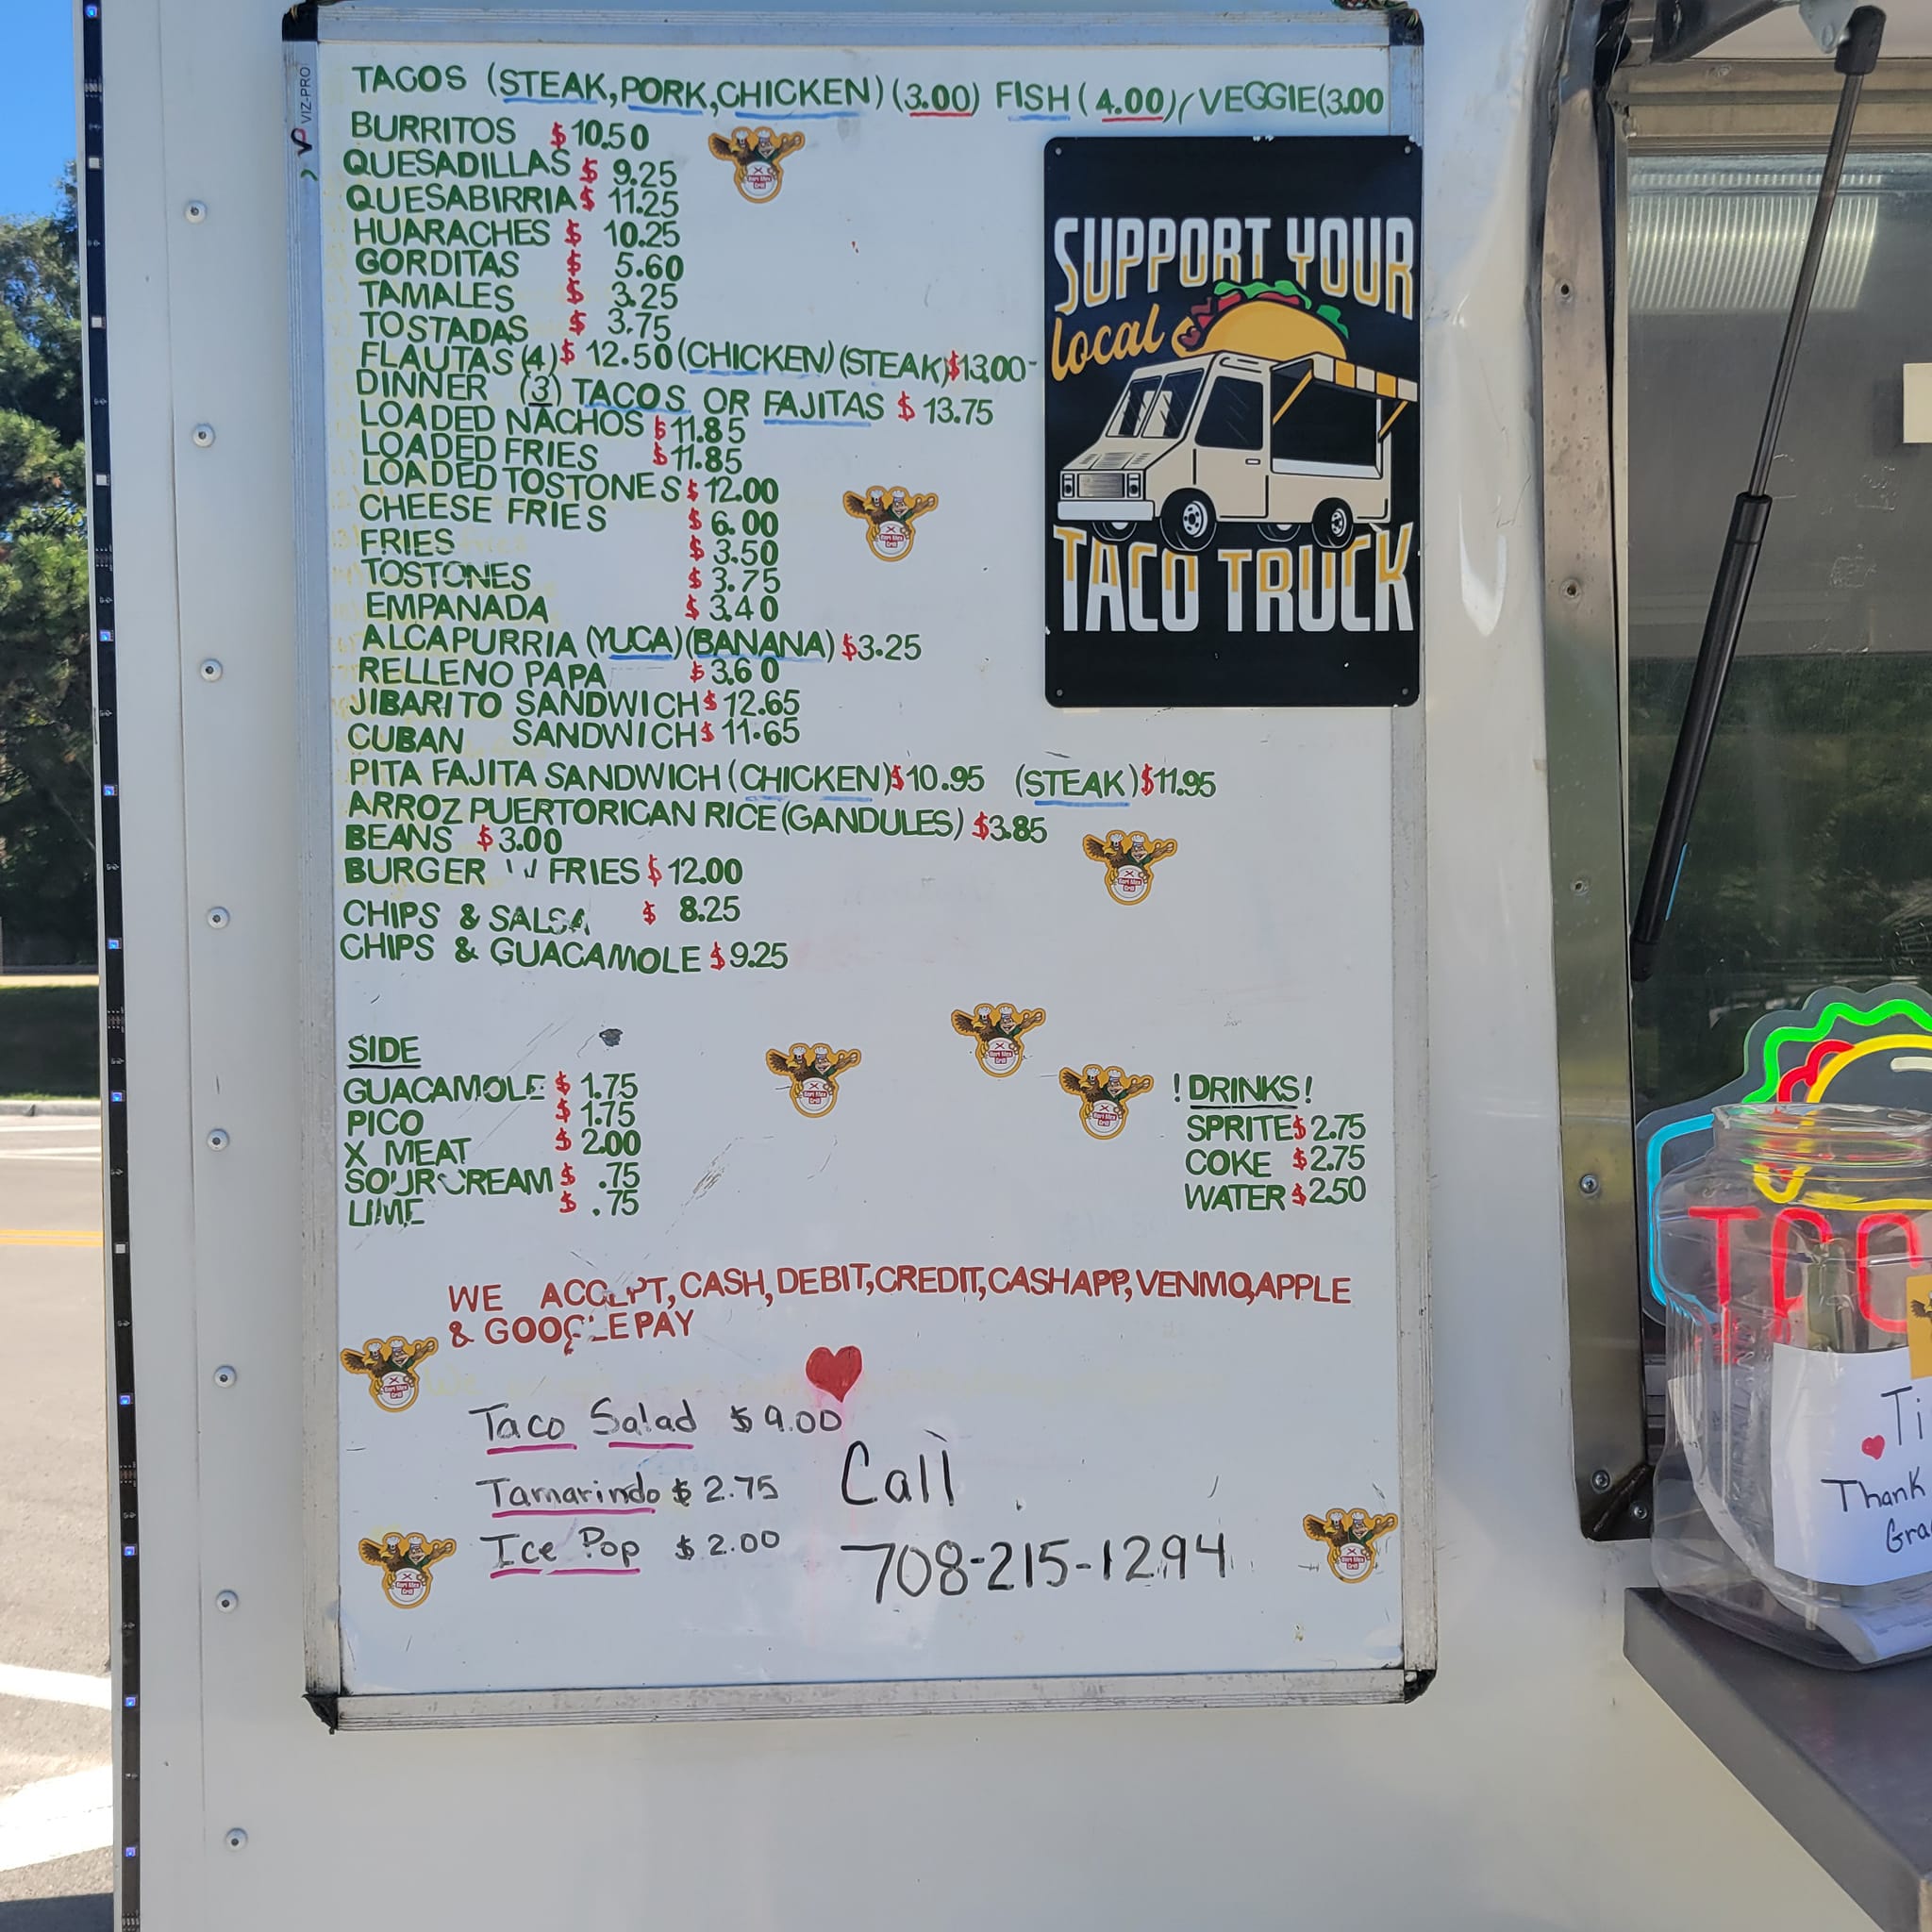 VIZ-PRO
TACOS (STEAK,PORK,CHICKEN)(3.00) FISH (4.00)/VEGGIE(3.00
BURRITOS $10.50
QUESADILLAS $ 9.25
QUESABIRRIA $ 11.25
HUARACHES $ 10.25
GORDITAS $ 5.60
TAMALES $ 3.25
TOSTADAS $ 3.75
FLAUTAS (4) $ 12.50 (CHICKEN) (STEAK) $13.00-
DINNER (3) TACOS OR FAJITAS $ 13.75
LOADED NACHOS $11.85
LOADED FRIES $11.85
LOADED TOSTONES $12.00
CHEESE FRIES $ 6.00
FRIES $ 3.50
TOSTONES $ 3.75
EMPANADA $ 3.40
ALCAPURRIA (YUCA)(BANANA) $3.25
RELLENO PAPA $3.60
JIBARITO SANDWICH $12.65
CUBAN SANDWICH $11.65
PITA FAJITA SANDWICH (CHICKEN)$10.95 (STEAK)$11.95
ARROZ PUERTORICAN RICE (GANDULES) $3.85
BEANS $3.00
BURGER FRIES $12.00
CHIPS & SALSA $ 8.25
CHIPS & GUACAMOLE $9.25
SUPPORT YOUR
local
TACO TRUCK
SIDE
GUACAMOLE $ 1.75
PICO $ 1.75
X MEAT $ 2.00
SOUR CREAM $ .75
LIME $ .75
! DRINKS !
SPRITE $2.75
COKE $2.75
WATER $2.50
WE ACCEPT, CASH, DEBIT, CREDIT, CASHAPP, VENMO, APPLE
& GOOGLE PAY
Taco Salad $ 9.00
Tamarindo $ 2.75
Ice Pop $ 2.00
Call
708-215-1294
TAC
Ti
Thank
Gra